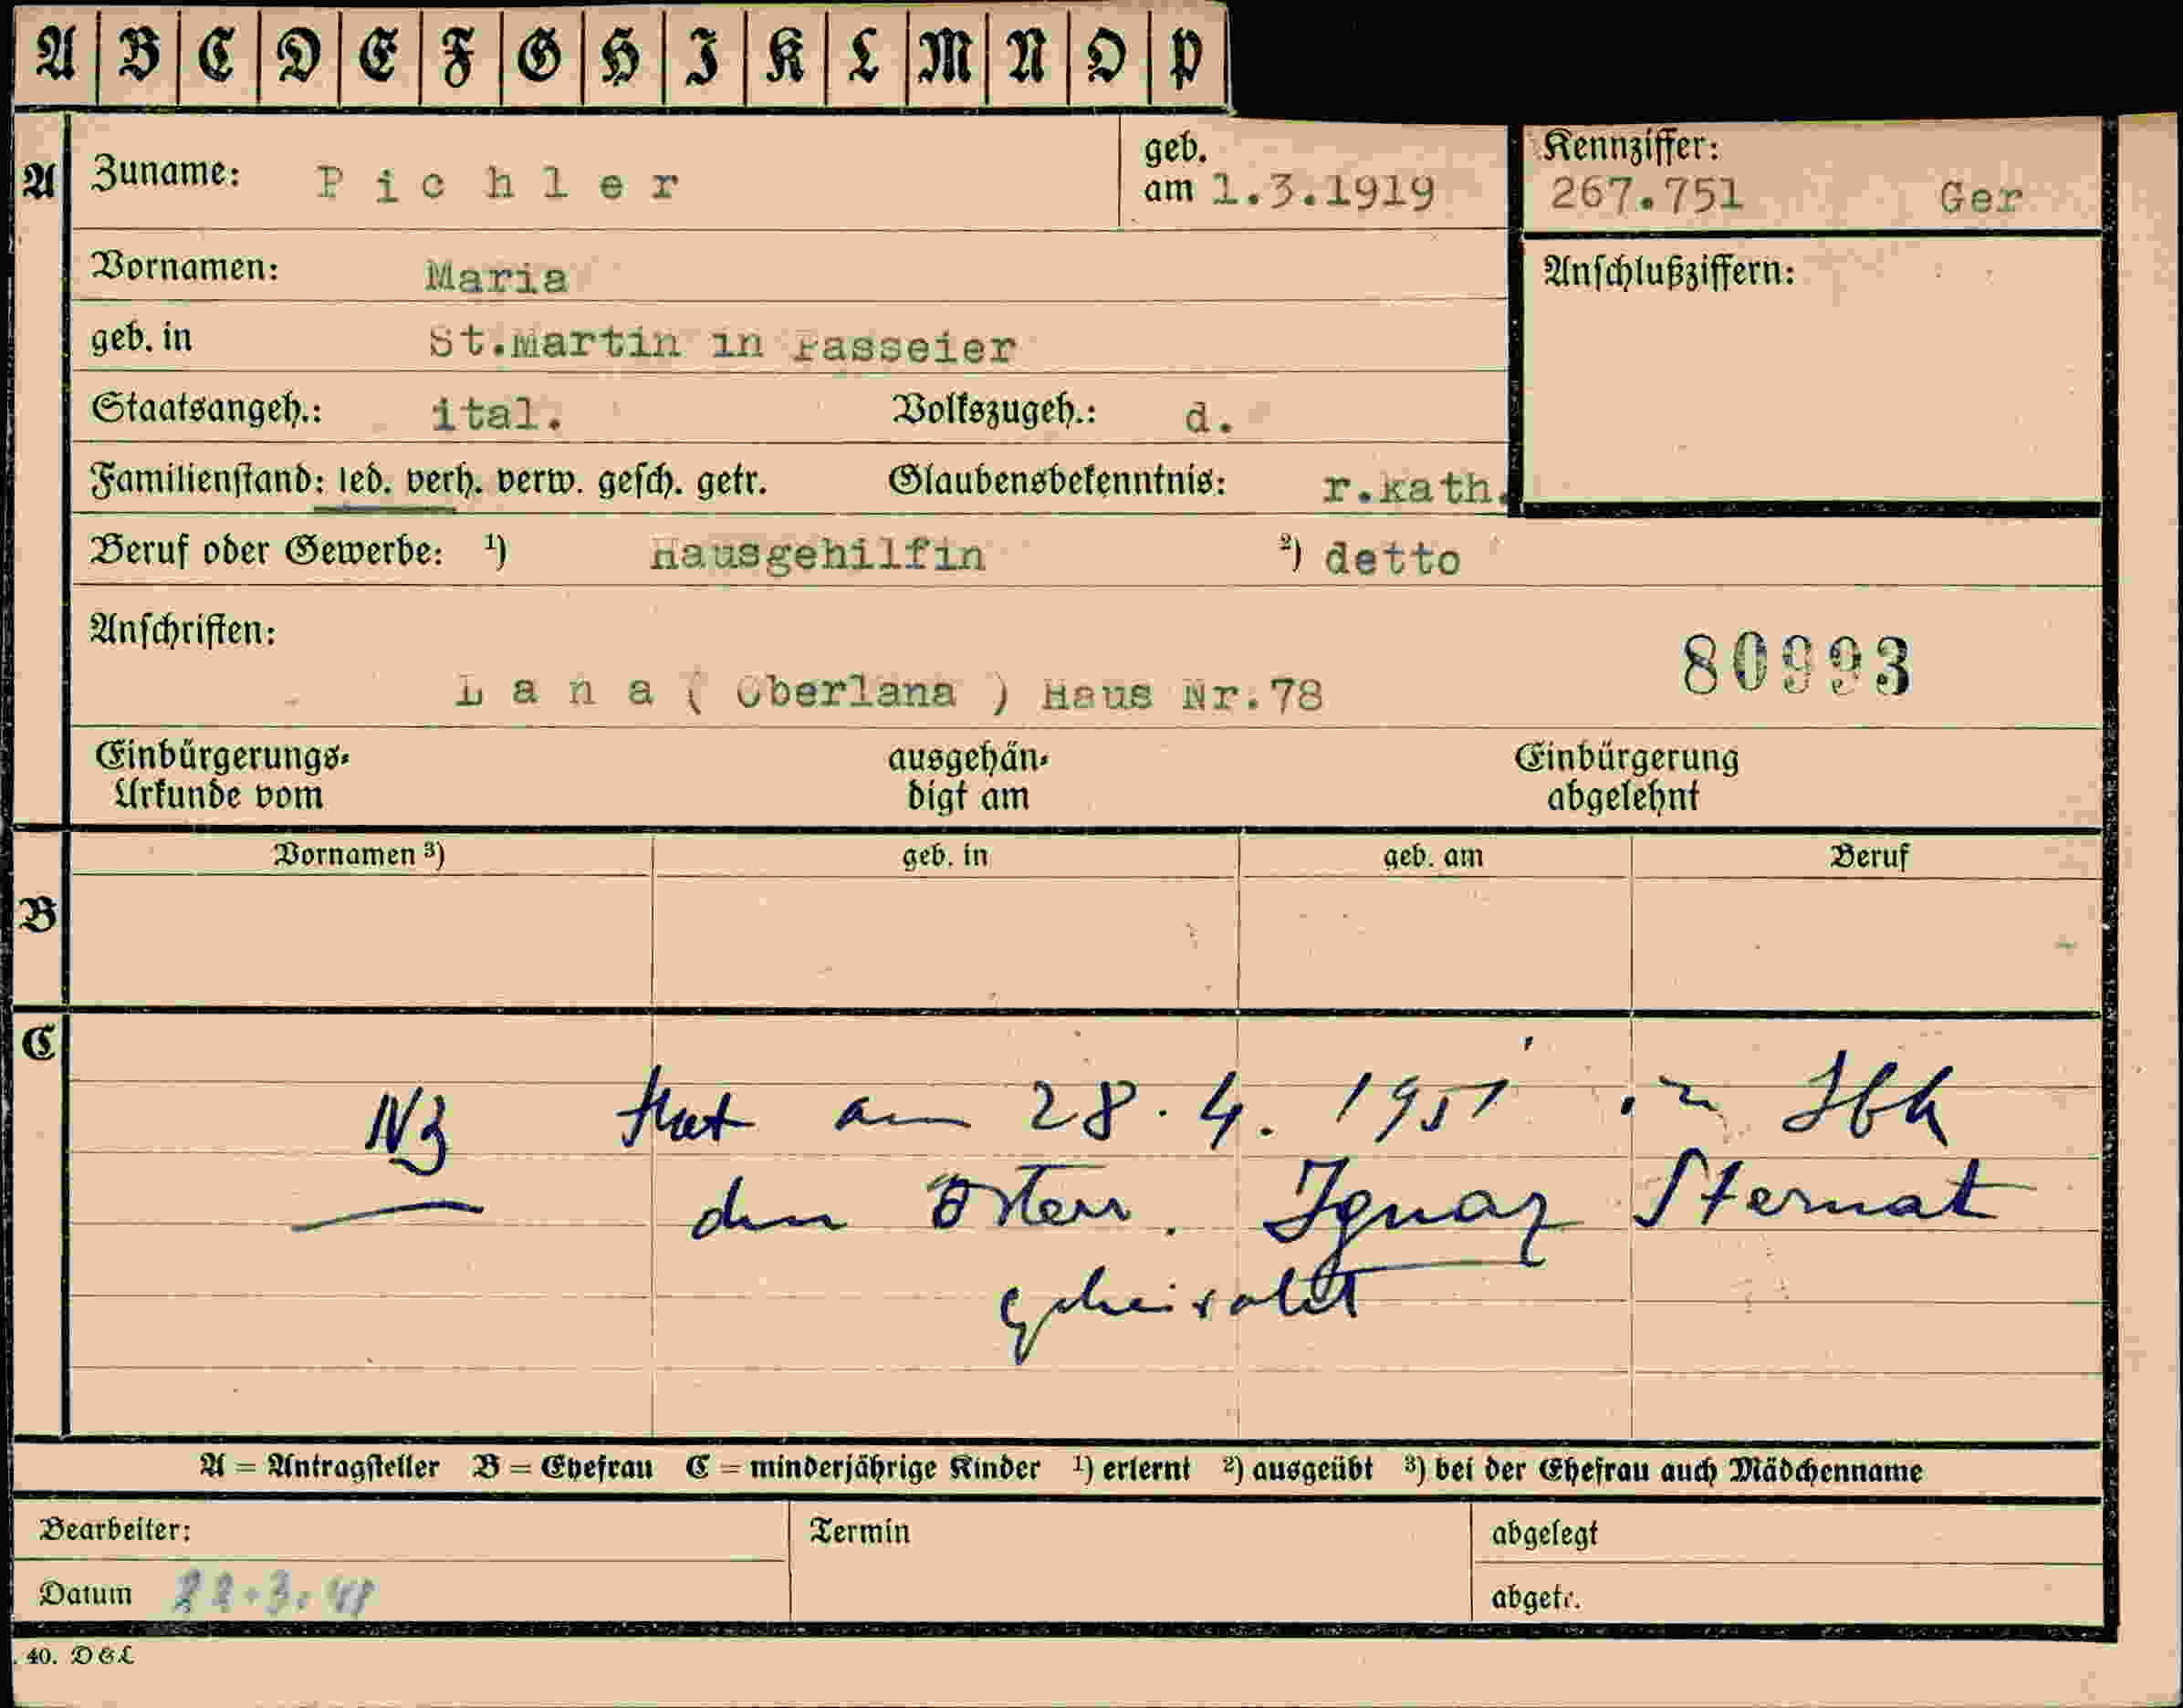 A B C D E F G H I K L M N O P
A Zuname: Pichler geb. am 1.3.1919 Kennziffer: 267.751 Ger
Vornamen: Maria Anschlußziffern:
geb. in St.Martin in Passeier
Staatsangeh.: ital. Volkszugeh.: d.
Familienstand: led. verh. verw. gesch. getr. Glaubensbekenntnis: r.kath.
Beruf oder Gewerbe: ¹) Hausgehilfin ²) detto
Anschriften:
80993
Lana ( Oberlana ) Haus Nr.78
Einbürgerungs- ausgehän- Einbürgerung
Urkunde vom digt am abgelehnt
Vornamen ³) geb. in geb. am Beruf
B
C
NB Hat am 28.4.1951 in Ibk
den österr. Ignaz Sternat
geheiratet
A = Antragsteller B = Ehefrau C = minderjährige Kinder ¹) erlernt ²) ausgeübt ³) bei der Ehefrau auch Mädchenname
Bearbeiter: Termin abgelegt
Datum abgetr.
40. D&L